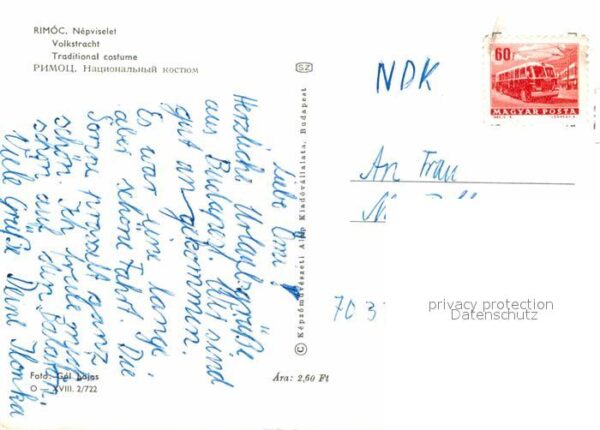 RIMÓC, Népviselet
Volkstracht
Traditional costume
РИМОЦ, Национальный костюм
SZ
NDK
60f
MAGYAR POSTA
An Frau
Liebe Omi!
Herzliche Urlaubsgrüße
aus Budapest. Wir sind
gut angekommen.
Es war eine lange
aber schöne Fahrt. Die
Sonne
schön. Ich freue mich
schon auf den Balaton.
Viele Grüße Deine Ilonka
© Képzőművészeti Alap Kiadóvállalata, Budapest
703
privacy protection
Datenschutz
Foto: Gál Lajos
O — XVIII. 2/722
Ára: 2,60 Ft